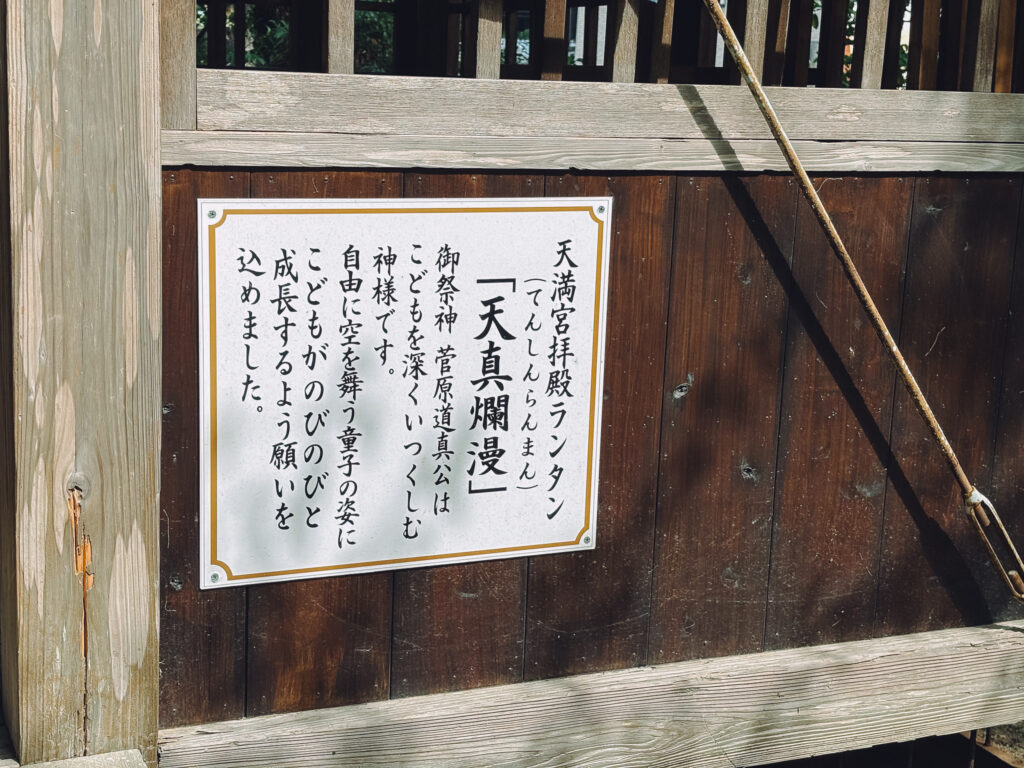 天満宮拝殿ランタン
(てんしんらんまん)
「天真爛漫」
御祭神 菅原道真公は
こどもを深くいつくしむ
神様です。
自由に空を舞う童子の姿に
こどもがのびのびと
成長するよう願いを
込めました。